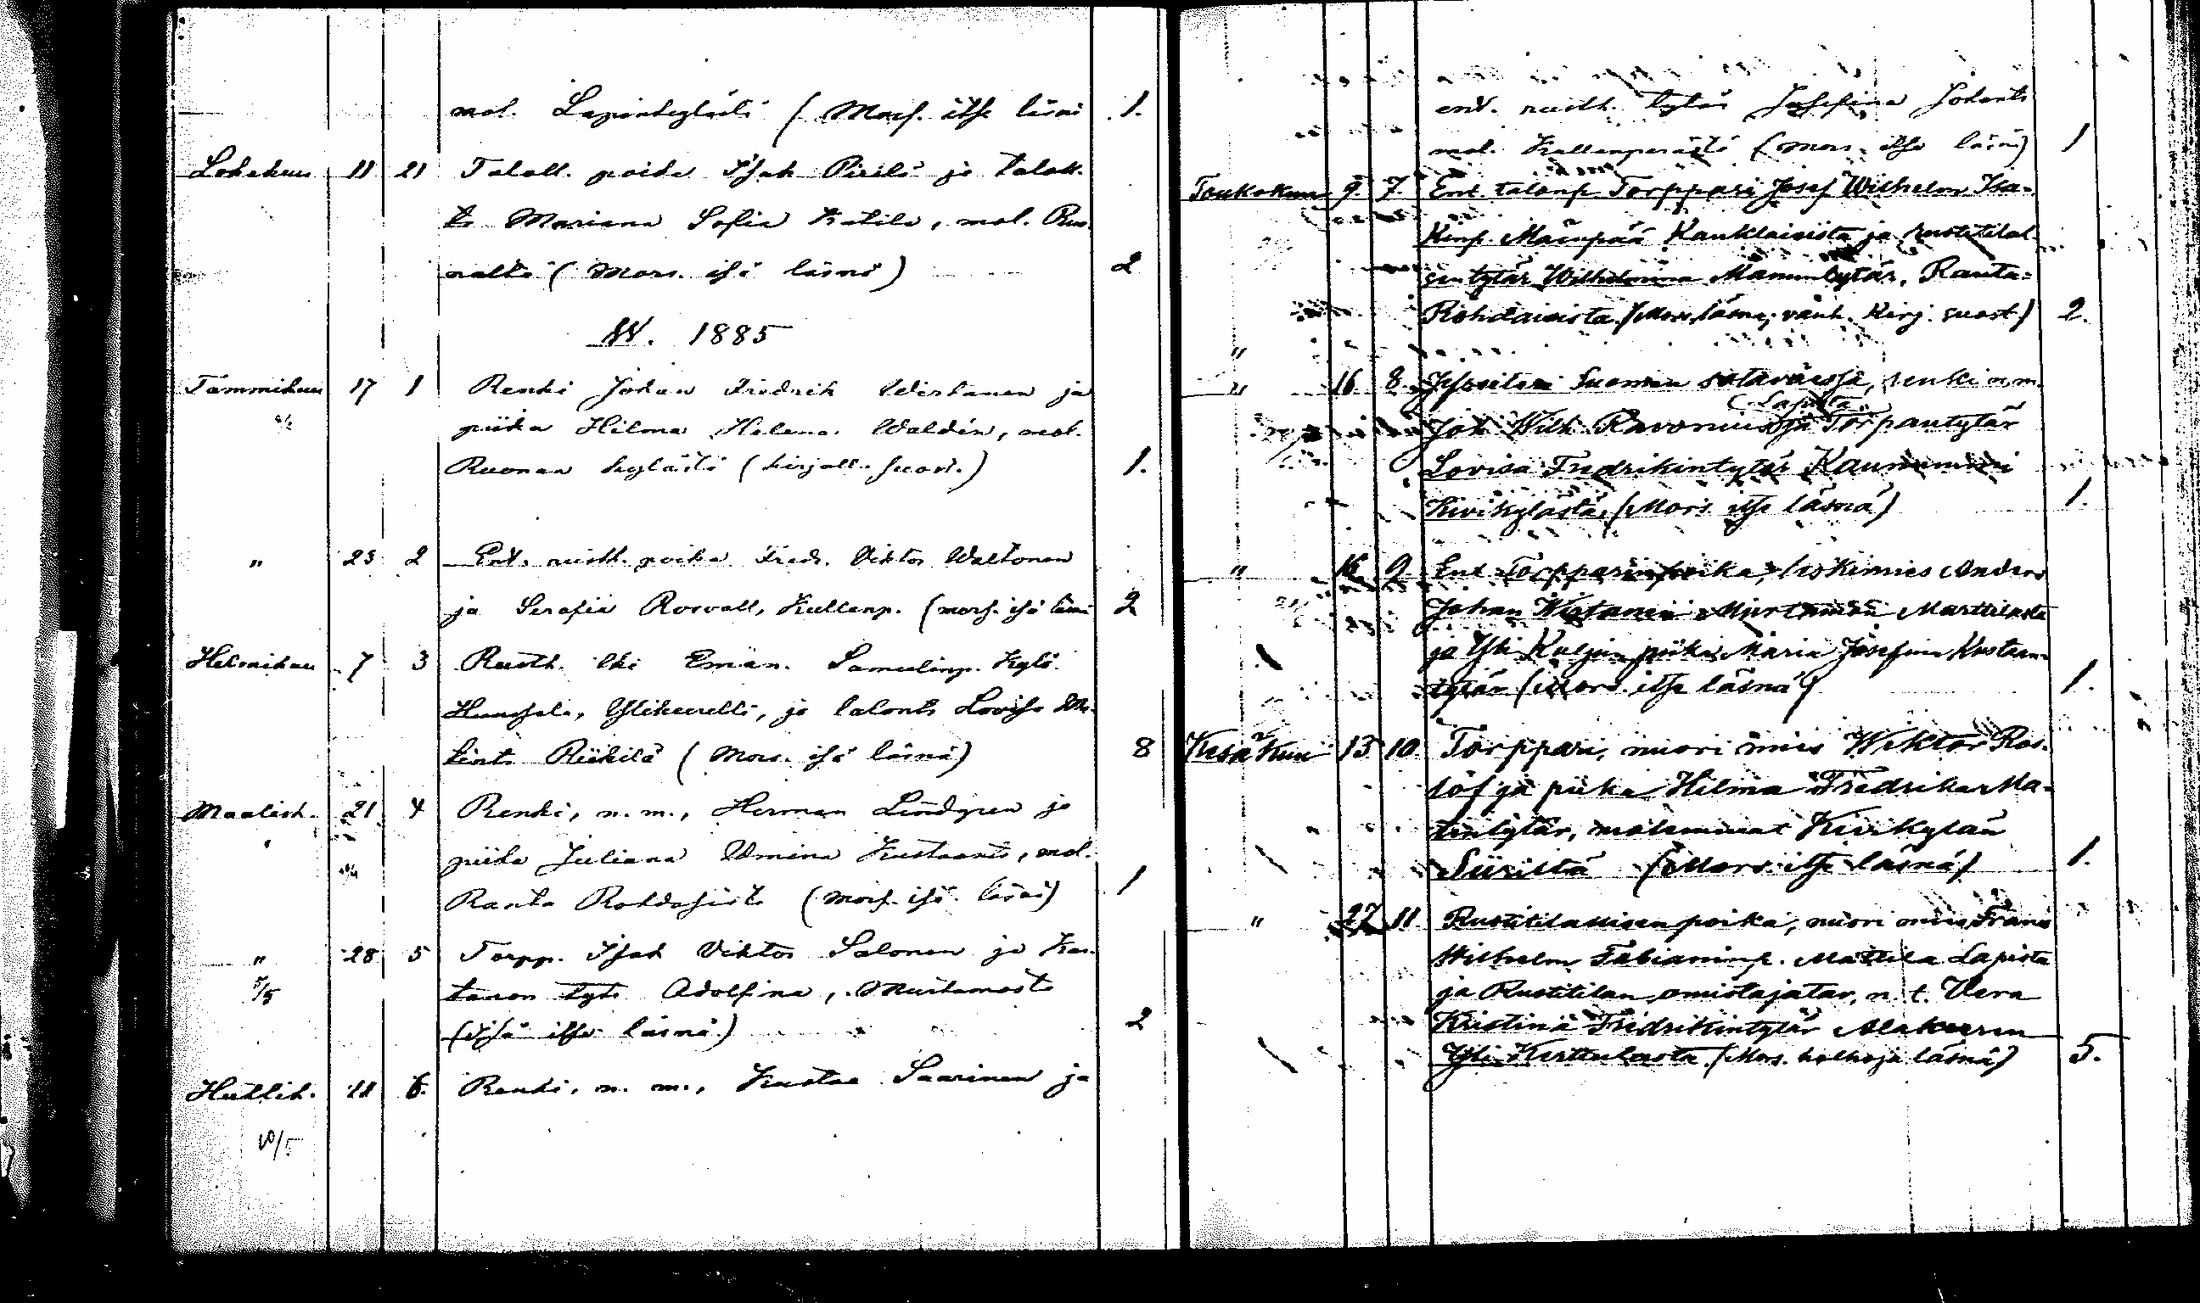 mol. Lapinkylästä (Mors. itse läsnä 1.
Lokakuu 11 21 Taloll. poika Isak Pirilä ja talok.
t. Mariana Sofia Katila, mol. Ruo-
nalta (Mors. isä läsnä) 2
W. 1885
Tammikuu 17 1 Renki Johan Fredrik Wirtanen ja
piika Hilma Helena Waldén, mol.
Ruonan kylästä (kirjall. suost.) 1.
" 23 2 Ent. rusth. poika Fredr. Viktor Waltonen
ja Serafia Rosvall, Kullanp. (mors. isä läsnä 2
Helmikuu 7 3 Rusth. lki Eman. Samulinp. Kylä
Ylikeerellä, ja talonts Lovisa
tints Riikilä (Mors. isä läsnä) 8
Maalisk. 21 4 Renki, n. m., Herman Lindgren ja
piika Juliana Wmina Kustaants, mol.
Ranta Rohdaisista (mors. isä läsnä) 1
" 28 5 Torpp. Isak Viktor Salonen ja
5/5 Adolfina,
(isä itse läsnä) 2
Huhtik. 11 6. Renki, n. m., Kustaa Saarinen ja
10/5
ent. rusth. tytär Josefina Johants
mol. Kullanperästä (mors. itse läsnä) 1
Toukokuu 9. 7. Ent. talonp. Torppari Josef Wilhelm Isa-
kinp. Mäenpää Kauklaisista ja rustitilal
sen tytär Wilhelmina Manuntytär, Ranta-
Rohdaisista (Mors. läsnä; vanh. kirj. suost.) 2.
"
" 16 8. Suomen sotaväessä, renki n. m.
Lapista
Joh. Wilh. Ravonius ja Torpantytär
Lovisa Fredrikintytär Kaunummi
Kivikylästä (Mors. itse läsnä) 1.
" 16 9 Ent Torpparin poika, leskimies Anders
Johan Marttilasta
ja Yli Kuljun piika Maria Josefina Kustaan-
tytär (Mors. itse läsnä) 1.
Kesäkuu 13 10 Torppari, nuori mies Wiktor Ros-
löf ja piika Hilma Fredrika Ma-
tintytär, molemmat Kivikylän
Siiristä (Mors. itse läsnä) 1.
" 27 11 Rustitilallisen poika, nuori mies Frans
Wilhelm Fabianinp. Mattila Lapista
ja Rustitilan omistajatar, n. t. Vera
Kristina Fredrikintytär Alakeeren
Yli Kerttulasta (Mors. holhoja läsnä) 5.